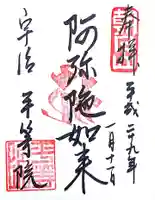 奉拝
平成二十九年
一月十一日
阿弥陀如来
宇治
平等院